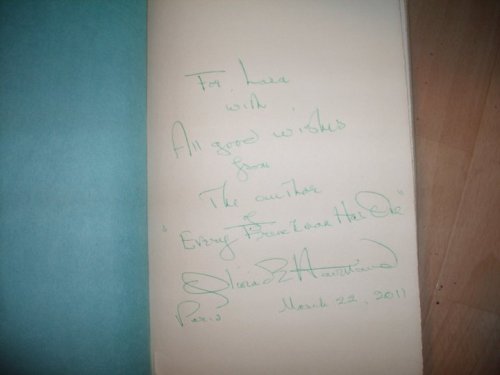 For Lara
with
All good wishes
from
The author
of
"Every Frenchman Has One"
Olivia de Havilland
Paris March 22, 2011